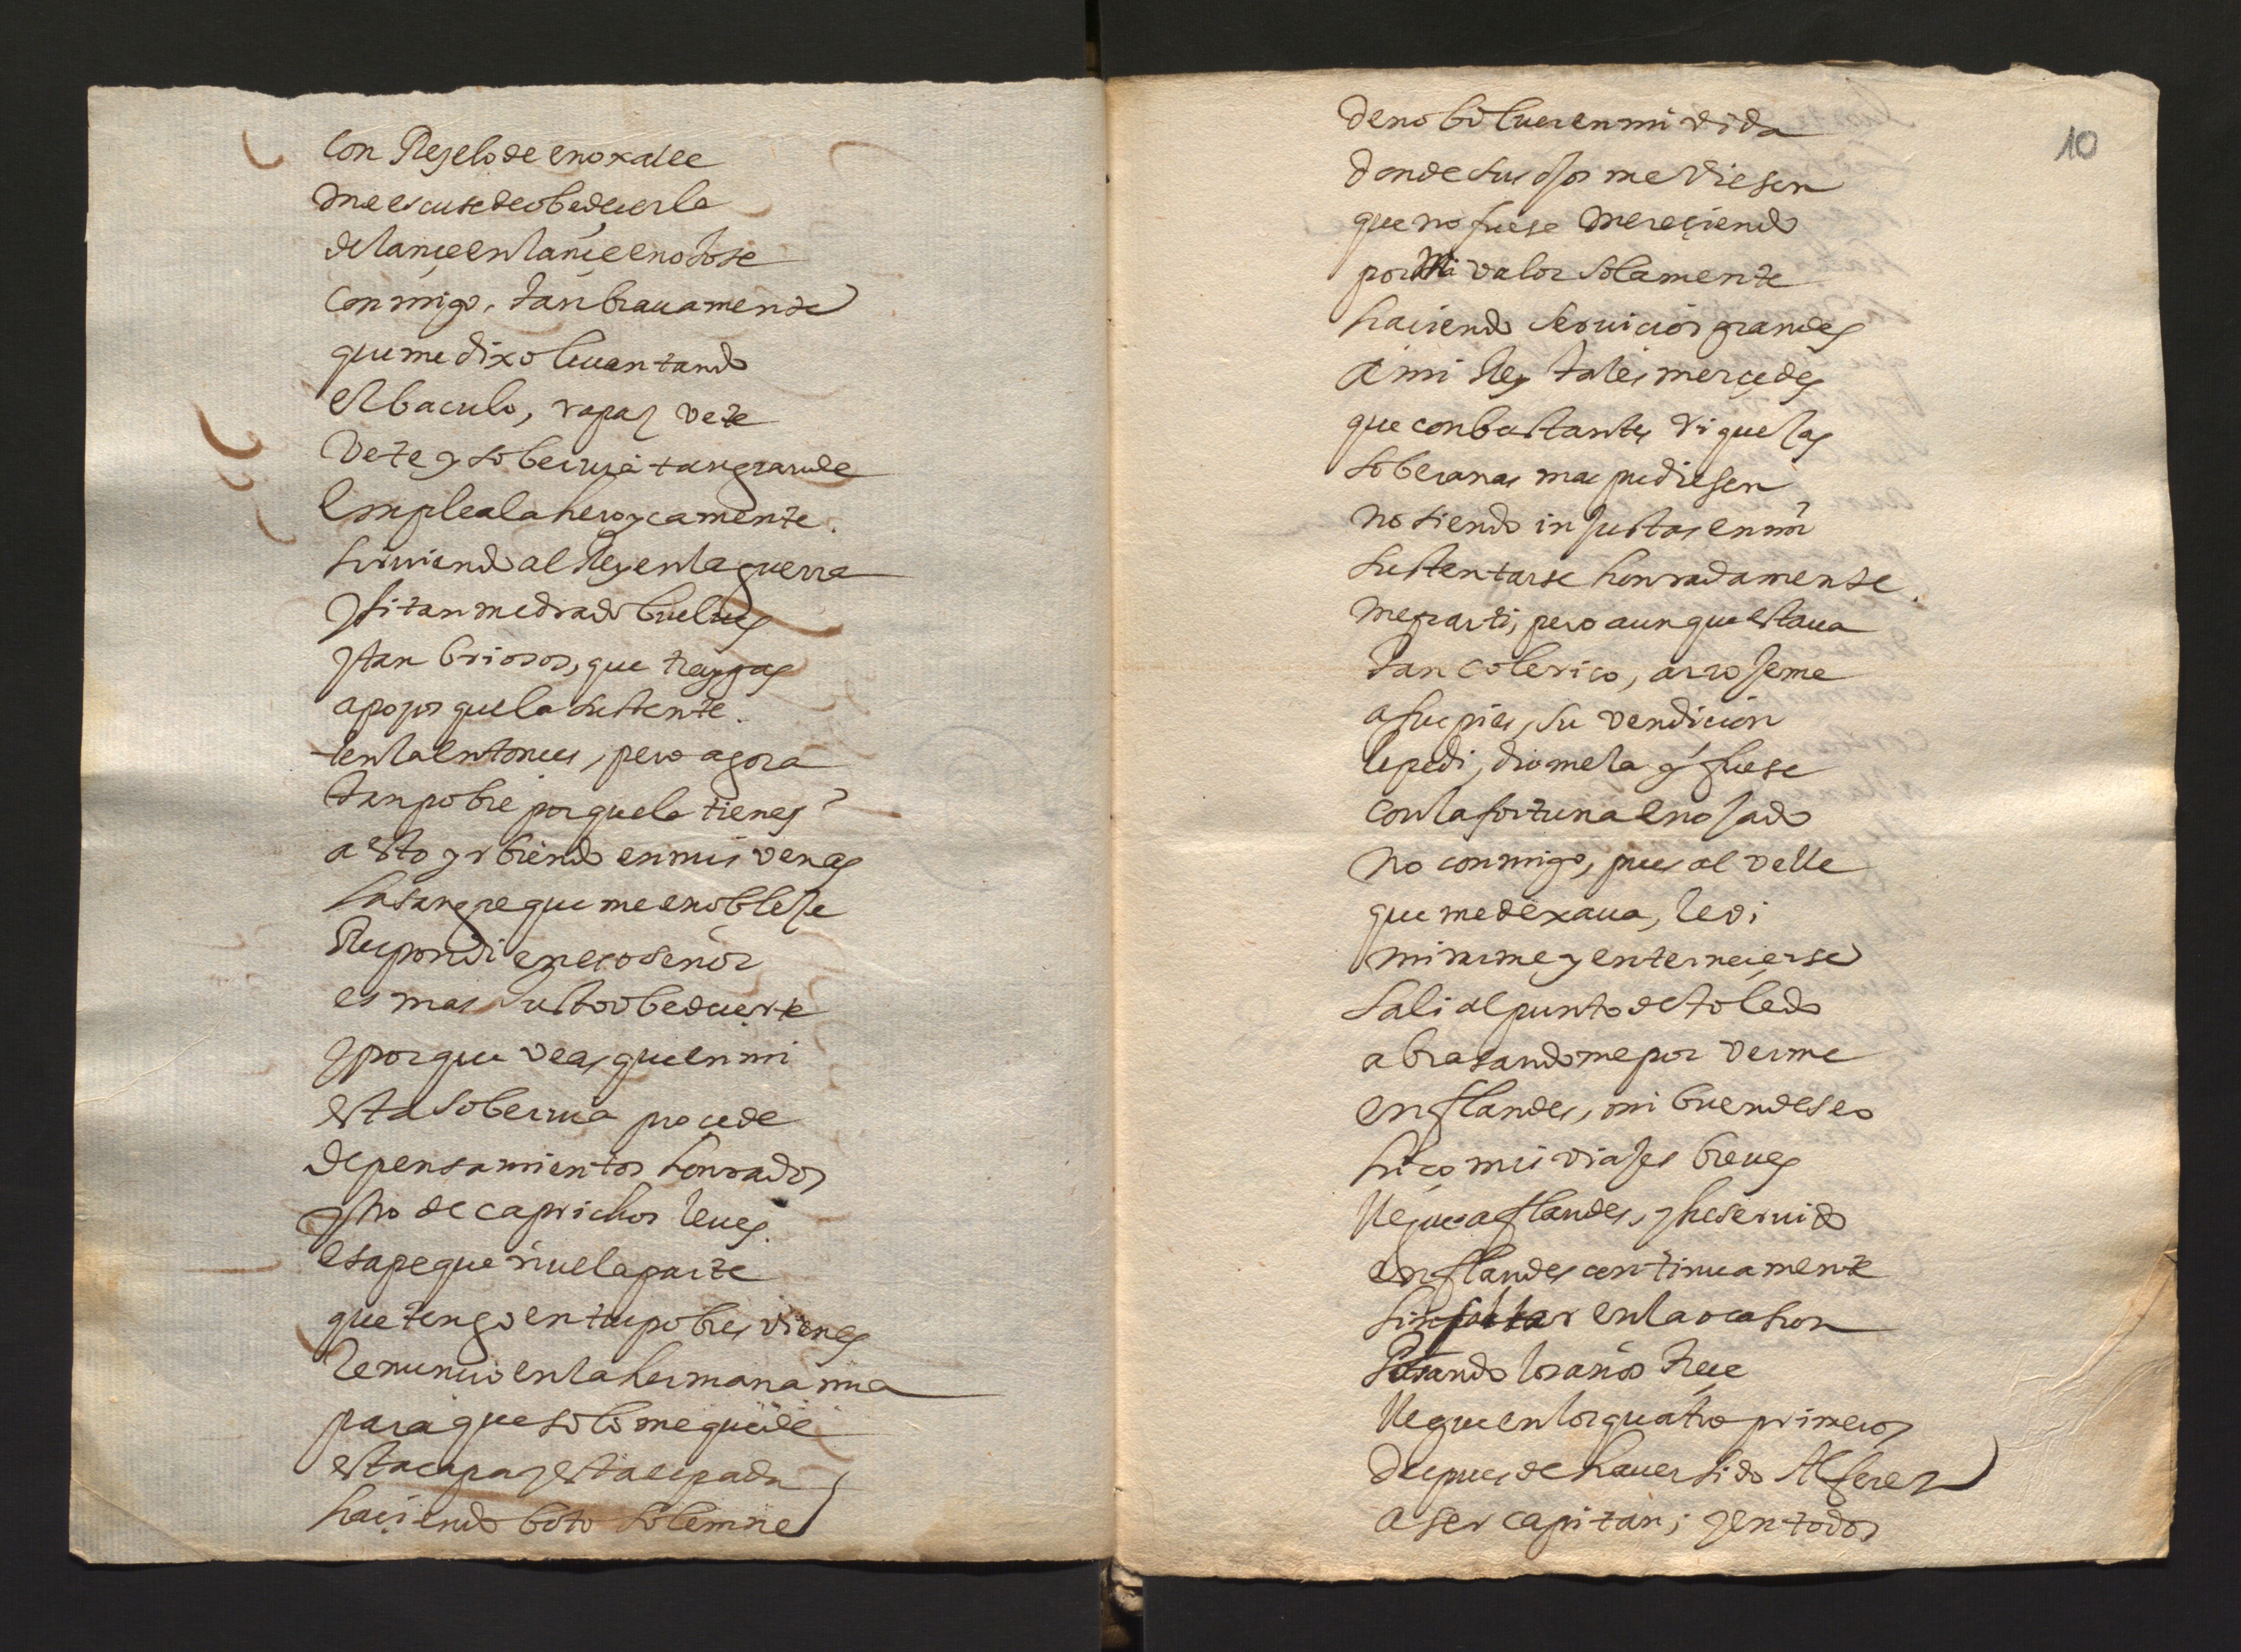 con Reçelo de enoxalle
me escuse de obedecerle
de lançe en lançe enojose
conmigo, tan brauamente
que me dixo leuantando
el baculo, rapaz vete
vete y soberuia tan grande
empleala heroycamente.
siruiendo al Rey en la guerra
y si tan medrado buelues
y tan briosos, que traygas
apoyos que la sustente.
tenla entonces, pero agora
tan pobre porque la tienes?
a esto yrbiendo en mis venas
la sangre que me enobleze
Respondi en eso señor
es mas justo obedecerte
y porque veas que en mi
esta soberuia procede
de pensamientos honrados
y no de caprichos leues.
esa pequeñuela parte
que tengo en tus pobres vienes
renuncio en la hermana mia
para que solo me quede
esta capa y esta espada
haçiendo boto solemne
10
de no boluer en mi vida
donde sus ojos me viesen
que no fuese mereçiendo
por mi valor solamente
haciendo seruicios grandes
a mi Rey tales merçedes
que con bastantes riqueças
soberanas me pudiesen
no siendo injustas en mi
sustentarse honradamente.
me parti, pero aunque estaua
tan colerico, arrojeme
a sus pies, su vendicion
le pedi, diomela y fuese
con la fortuna enojado
no conmigo, pues al velle
que me dexaua, le vi
mirarme y enternecerse
sali al punto de toledo
abrasandome por verme
en flandes, mi buen deseo
hiço mis viajes breues
llegue a flandes, y he seruido
en flandes continuamente
sin faltar en la ocasion
pasando los años treçe
llegue en los quatro primeros
despues de hauer sido Alferez
a ser capitan; y en todos